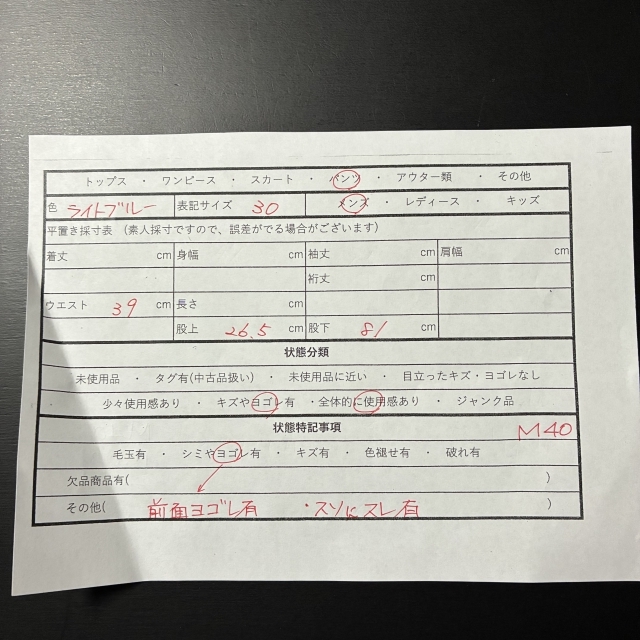 トップス ・ ワンピース ・ スカート ・ パンツ ・ アウター類 ・ その他
色 ライトブルー 表記サイズ 30 メンズ ・ レディース ・ キッズ
平置き採寸表 （素人採寸ですので、誤差がでる場合がございます）
着丈 cm 身幅 cm 袖丈 cm 肩幅 cm
裄丈 cm
ウエスト 39 cm 長さ cm
股上 26.5 cm 股下 81 cm
状態分類
未使用品 ・ タグ有(中古品扱い) ・ 未使用品に近い ・ 目立ったキズ・ヨゴレなし
少々使用感あり ・ キズやヨゴレ有 ・全体的に使用感あり ・ ジャンク品
状態特記事項 M40
毛玉有 ・ シミやヨゴレ有 ・ キズ有 ・ 色褪せ有 ・ 破れ有
欠品商品有( )
その他( 前面ヨゴレ有 ・スソにスレ有 )